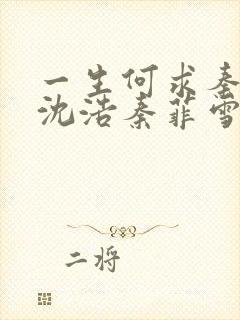 一生何求秦
沈浩秦菲雪
二将